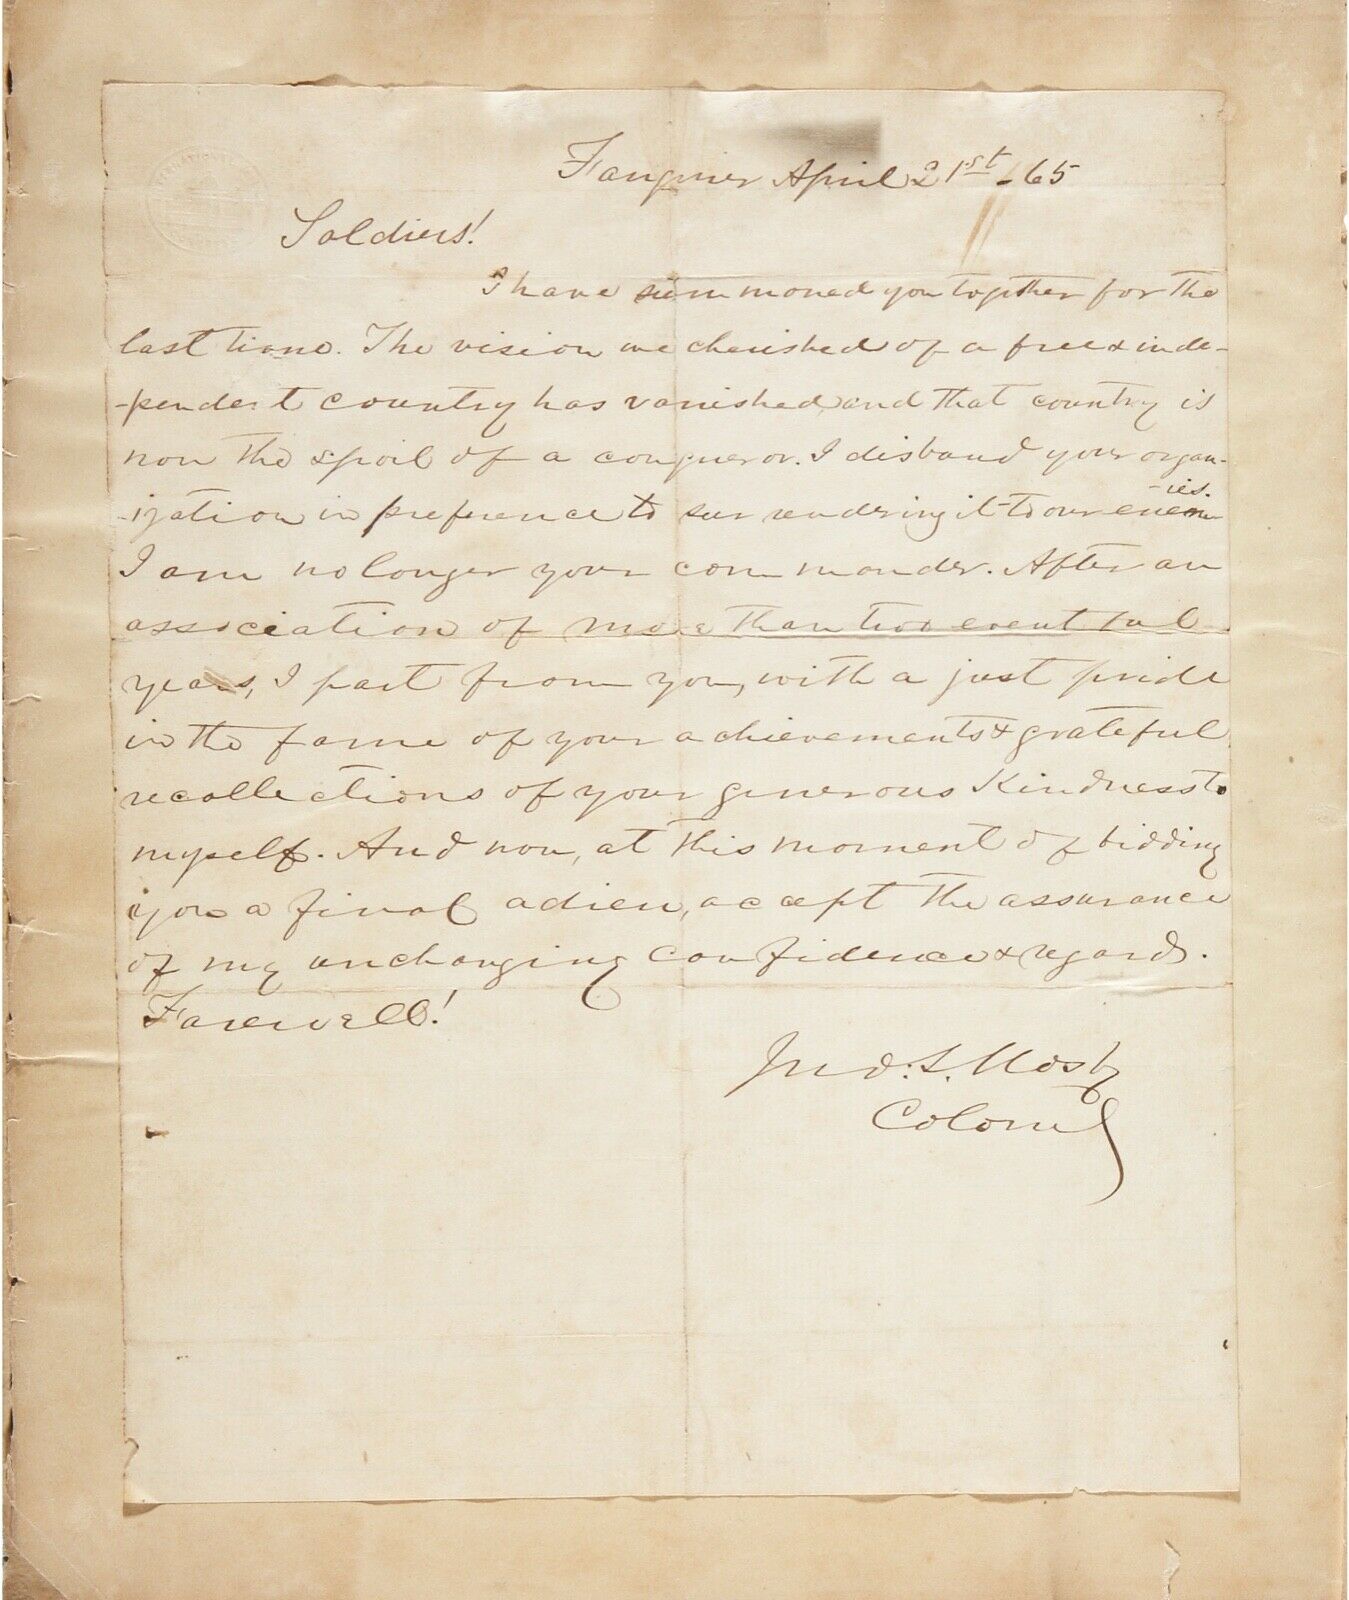 Fauquier April 21st - 65
Soldiers!
I have summoned you together for the
last time. The vision we cherished of a free & inde-
-pendent country has vanished, and that country is
now the spoil of a conqueror. I disband your organ-
-ization in preference to surrendering it to our enem
-ies.
I am no longer your commander. After an
association of more than two eventful
years, I part from you, with a just pride
in the fame of your achievements & grateful
recollections of your generous kindness to
myself. And now, at this moment of bidding
you a final adieu, accept the assurance
of my unchanging confidence & regard.
Farewell!
Jno. S. Mosby
Colonel